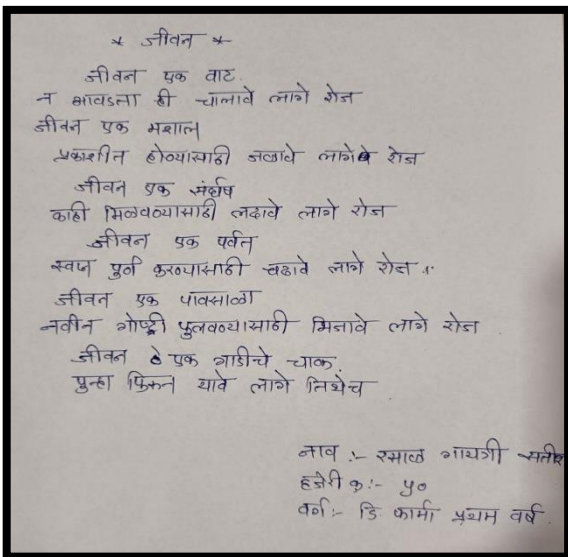 * जीवन *
जीवन एक वाट.
न आवडता ही चालावे लागे रोज
जीवन एक मशाल
प्रकाशीत होण्यासाठी जळावे लागे रोज
जीवन एक संर्घष
काही मिळवण्यासाठी लढावे लागे रोज
जीवन एक पर्वत
स्वप्न पुर्ण करण्यासाठी चढावे लागे रोज
जीवन एक पावसाळा
नवीन गोष्टी फुलवण्यासाठी भिजावे लागे रोज
जीवन हे एक गाडीचे चाक.
पुन्हा फिरून यावे लागे तिथेच
नाव :- रसाळ गायत्री सतीश
हजेरी क्र:- ५०
वर्ग:- डि फार्मा प्रथम वर्ष.